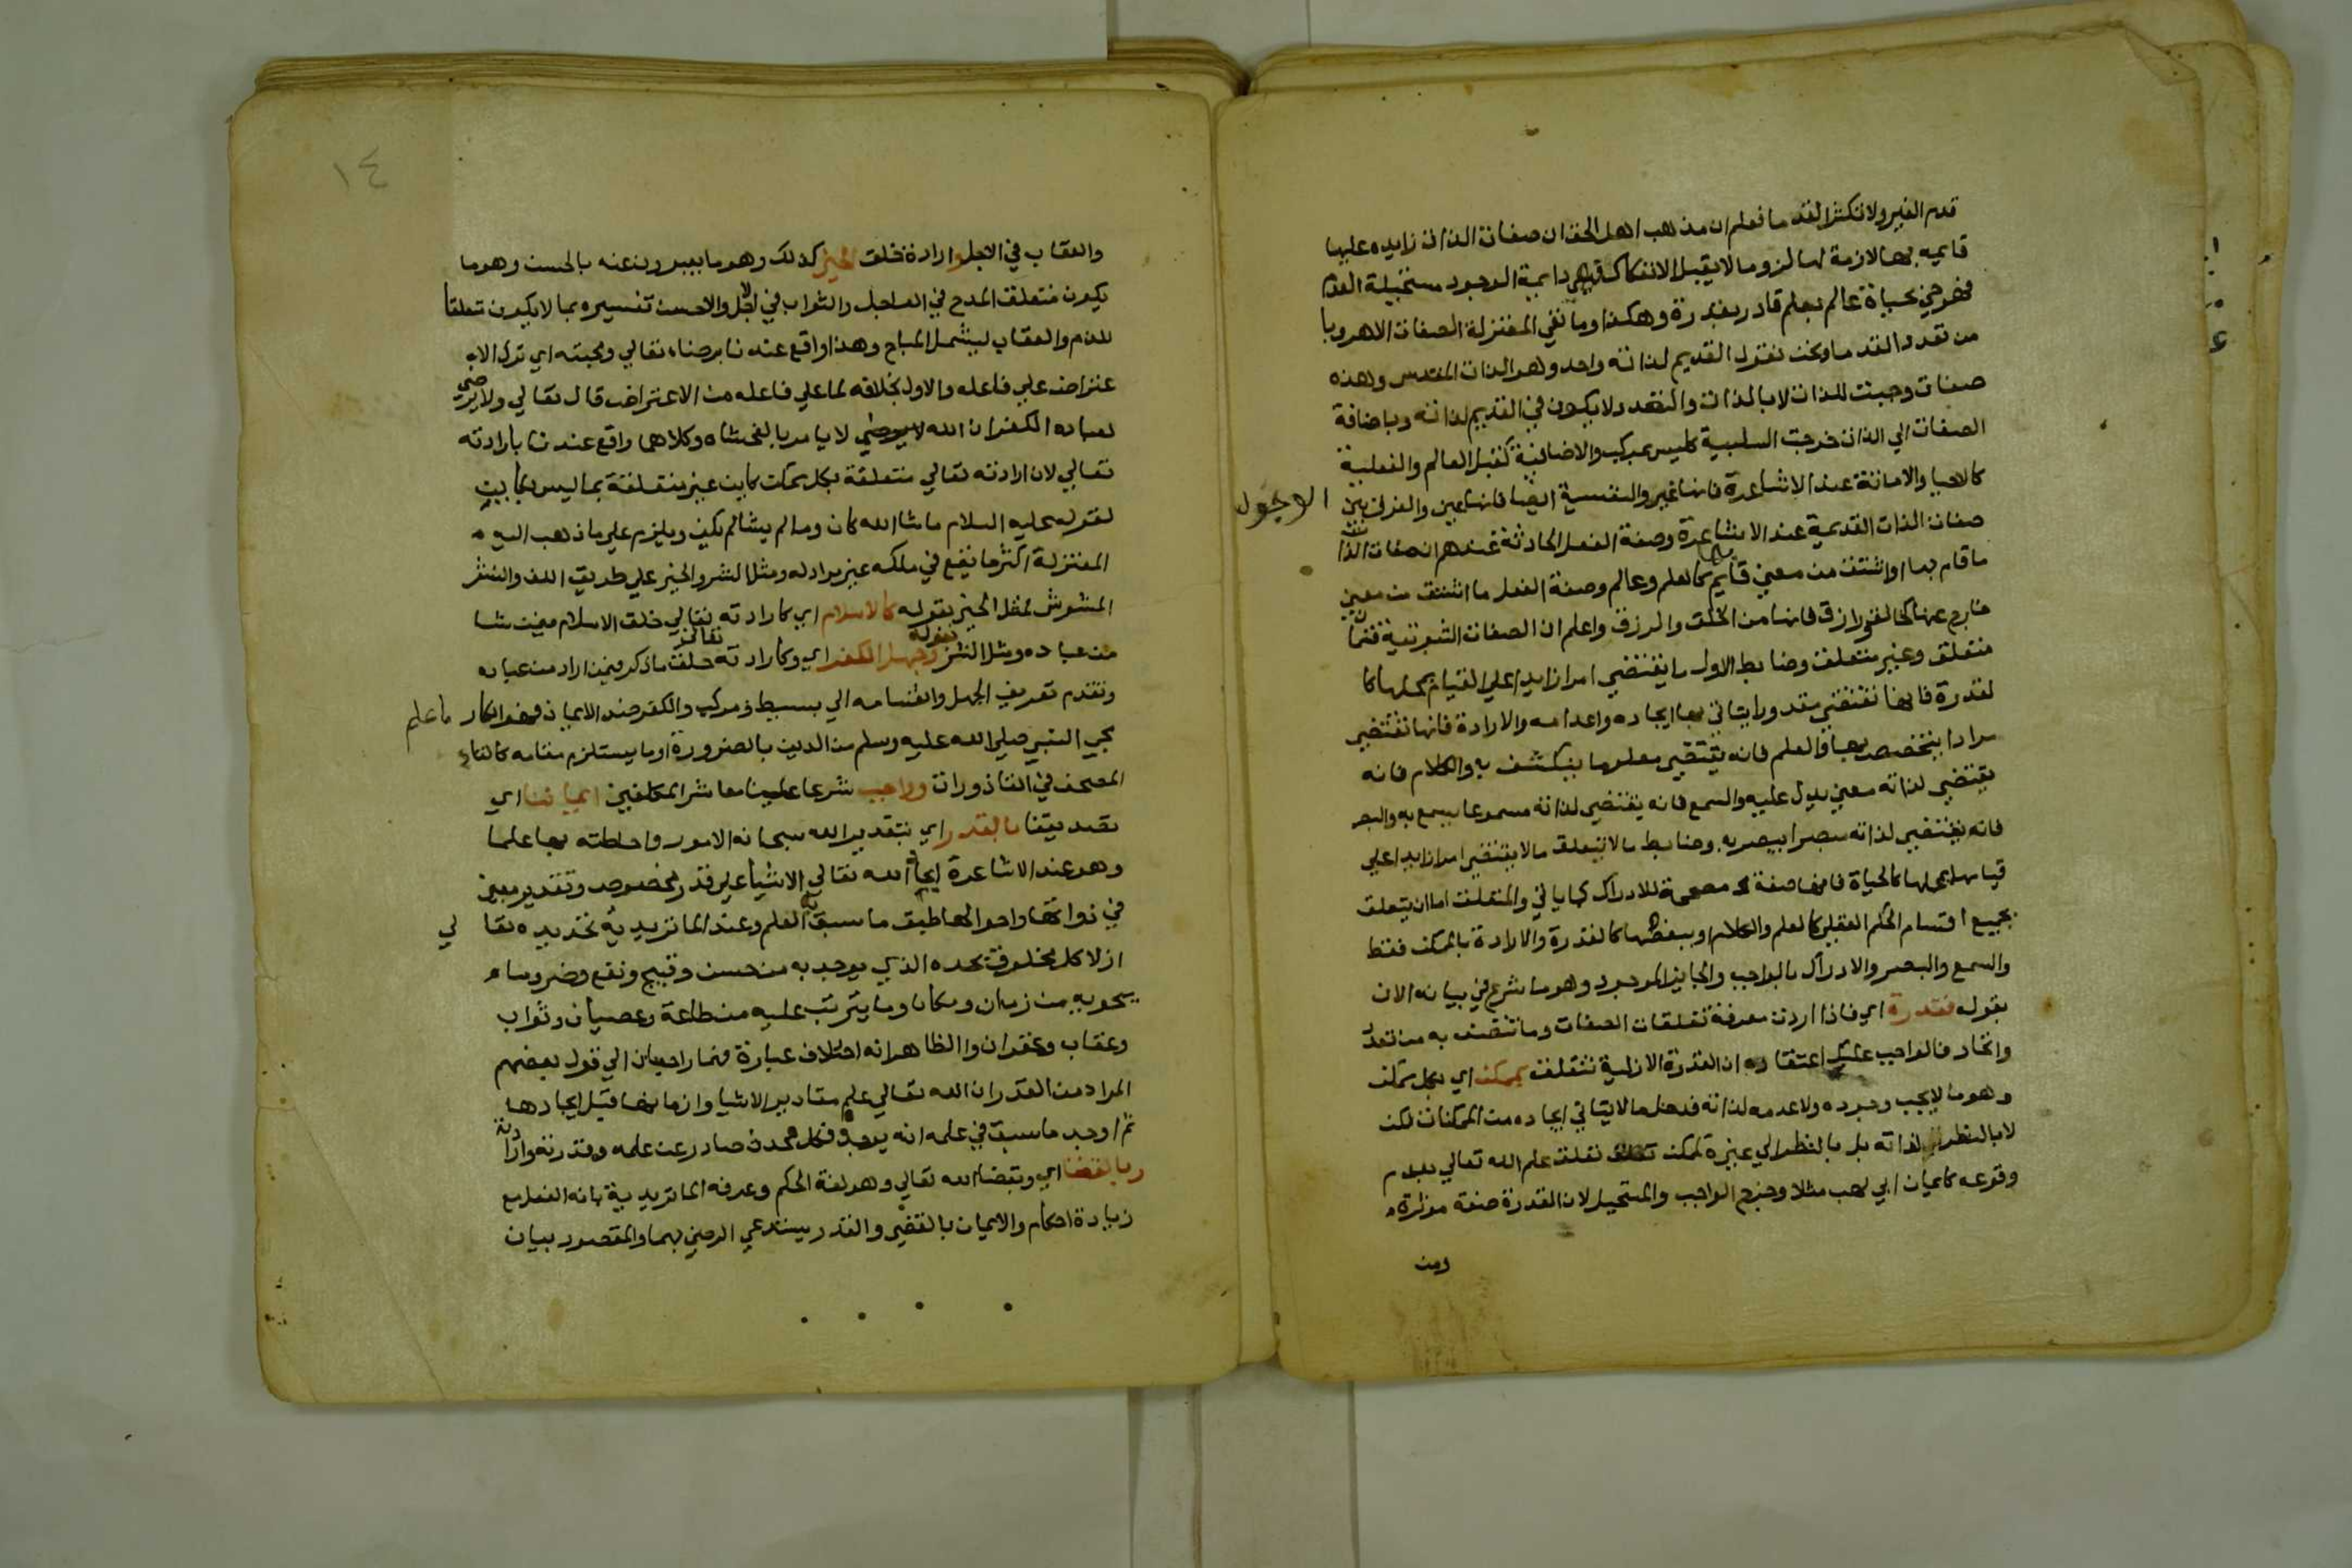 قدم الغير ولا تكثر القدما فعلم ان مذهب اهل الحق ان صفات الذات زايده عليها
قايمه بها لازمة لها لزوما لا يقبل الانفكاك فهي دايمة الوجود مستحيلة العدم
فهو حي بحياة عالم بعلم قادر بقدرة وهكذا وما نفي المعتزلة الصفات الا هروبا
من تعدد القدما ونحن نقول القديم لذاته واحد وهو الذات المقدس وهذه
صفات وجبت للذات لا بالذات والتعدد لا يكون في القديم لذاته وباضافة
الصفات الي الذات خرجت السلبية كليس بمركب والاضافية كقبل العالم والفعلية
كالاحيا والاماتة عند الاشاعرة فانها غير والنفسية ايضا فانها عين والفرق بين الوجود
صفات الذات القديمة عند الاشاعرة وصفة الفعل الحادثة عندهم ان صفات الذات
ما قام بها او اشتق من معني قايم بها كالعلم وعالم وصفة الفعل ما اشتق من معني
خارج عنها كخالق ورازق فانها من الخلق والرزق واعلم ان الصفات الثبوتية قسمان
متعلق وغير متعلق وضابط الاول ما يقتضي امرا زايدا علي القيام بمحلها كا
لقدرة فانها تقتضي مقدورا يتاتي بها ايجاده واعدامه والارادة فانها تقتضي
مرادا يتخصص بها والعلم فانه يقتضي معلوما ينكشف به والكلام فانه
يقتضي لذاته معني يدل عليه والسمع فانه يقتضي لذاته مسموعا يسمع به والبصر
فانه يقتضي لذاته مبصرا يبصر به وضابط ما لا يتعلق ما لا يقتضي امرا زايدا علي
قيامها بمحلها كالحياة فانها صفة مصححة للادراك كما ياتي والمتعلق اما ان يتعلق
بجميع اقسام الحكم العقلي كالعلم والكلام او ببعضها كالقدرة والارادة بالممكن فقط
والسمع والبصر والادراك بالواجب والجايز الموجود وهو ما شرع في بيانه الان
بقوله فقدرة اي فاذا اردت معرفة تعلقات الصفات وما تتصف به من تعدد
واتحاد فالواجب عليك اعتقاده ان القدرة الازلية تتعلق بممكن اي بكل ممكن
وهو ما لا يجب وجوده ولا عدمه لذاته فدخل ما لا يتاتي ايجاده من الممكنات لكن
لا بالنظر لذاته بل بالنظر الي غيره كممكن تعلق علم الله تعالي بعدم
وقوعه كايمان ابي لهب مثلا وخرج الواجب والمستحيل لان القدرة صفة موثرة
ومن
١٤
والعقاب في الاجل وارادة خلق الخير كذلك وهو ما يعبرون عنه بالحسن وهو ما
يكون متعلق المدح في العاجل والثواب في الاجل والاحسن تفسيره بما لا يكون متعلقا
للذم والعقاب ليشمل المباح وهذا واقع عندنا برضاه تعالي ومحبته اي ترك الا
عتراض علي فاعله والاول بخلافه لما علي فاعله من الاعتراض قال تعالي ولا يرضي
لعباده الكفر ان الله لا يامر بالفحشاه وكلاهما واقع عندنا بارادته
تعالي لان ارادته تعالي متعلقة بكل ممكن كاين غير متعلقة بما ليس بكاين
لقوله عليه السلام ما شا الله كان وما لم يشا لم يكن ويلزم علي ما ذهب اليه
المعتزلة اكثر ما يقع في ملكه غير مراد له ومثل الشر والخير علي طريق اللف والنشر
المشوش لمثل الخير بقوله كالاسلام اي كارادته تعالي خلق الاسلام فيمن شا
من عباده ومثل الشر بقوله وجهل الكفر اي وكارادته تعالي خلق ما ذكر فيمن اراد من عباده
وتقدم تعريف الجهل وانقسامه الي بسيط ومركب والكفر ضد الايمان فهو انكار ما علم
مجي النبي صلي الله عليه وسلم من الدين بالضرورة او ما يستلزم مقامه كالقاء
المصحف في القاذورات وواجب شرعا علينا معاشر المكلفين ايماننا اي
تصديقنا بالقدر اي بتقدير الله سبحانه الامور واحاطته بها علما
وهو عند الاشاعرة ايجاد الله تعالي الاشيا علي قدر مخصوص وتقدير معين
في ذواتها واحوالها طبق ما سبق به العلم وعند الماتريدية تحديده تعا لي
ازلا كل مخلوق بحده الذي يوجد به من حسن وقبيح ونفع وضر وما
يحويه من زمان ومكان وما يترتب عليه من طاعة وعصيان وثواب
وعقاب وغفران والظاهر انه اختلاف عبارة فهما راجعان الي قول بعضهم
المراد من القدر ان الله تعالي علم مقادير الاشيا وازمانها قبل ايجادها
ثم اوجد ما سبق في علمه انه يوجد فكل محدث صادر عن علمه وقدرته وارادته
وبالقضا اي وبقضاء الله تعالي وهو لغة الحكم وعرفه الماتريدية بانه الفعل مع
زيادة احكام والايمان بالقضي والقدر يستدعي الرضي بهما والمقصود بيان